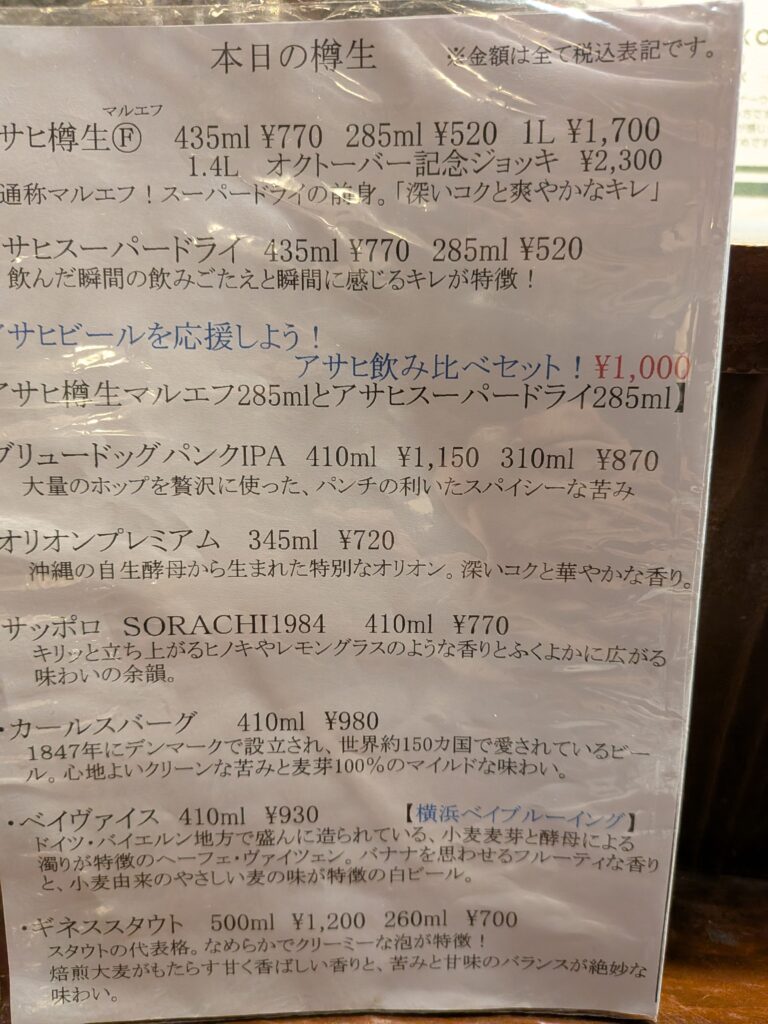 本日の樽生 ※金額は全て税込表記です。
マルエフ
サヒ樽生Ⓕ 435ml ¥770 285ml ¥520 1L ¥1,700
1.4L オクトーバー記念ジョッキ ¥2,300
通称マルエフ！スーパードライの前身。「深いコクと爽やかなキレ」
サヒスーパードライ 435ml ¥770 285ml ¥520
飲んだ瞬間の飲みごたえと瞬間に感じるキレが特徴！
アサヒビールを応援しよう！
アサヒ飲み比べセット！¥1,000
アサヒ樽生マルエフ285mlとアサヒスーパードライ285ml】
ブリュードッグパンクIPA 410ml ¥1,150 310ml ¥870
大量のホップを贅沢に使った、パンチの利いたスパイシーな苦み
オリオンプレミアム 345ml ¥720
沖縄の自生酵母から生まれた特別なオリオン。深いコクと華やかな香り。
サッポロ SORACHI1984 410ml ¥770
キリッと立ち上がるヒノキやレモングラスのような香りとふくよかに広がる
味わいの余韻。
・カールスバーグ 410ml ¥980
1847年にデンマークで設立され、世界約150カ国で愛されているビー
ル。心地よいクリーンな苦みと麦芽100％のマイルドな味わい。
・ベイヴァイス 410ml ¥930 【横浜ベイブルーイング】
ドイツ・バイエルン地方で盛んに造られている、小麦麦芽と酵母による
濁りが特徴のヘーフェ・ヴァイツェン。バナナを思わせるフルーティな香り
と、小麦由来のやさしい麦の味が特徴の白ビール。
・ギネススタウト 500ml ¥1,200 260ml ¥700
スタウトの代表格。なめらかでクリーミーな泡が特徴！
焙煎大麦がもたらす甘く香ばしい香りと、苦みと甘味のバランスが絶妙な
味わい。